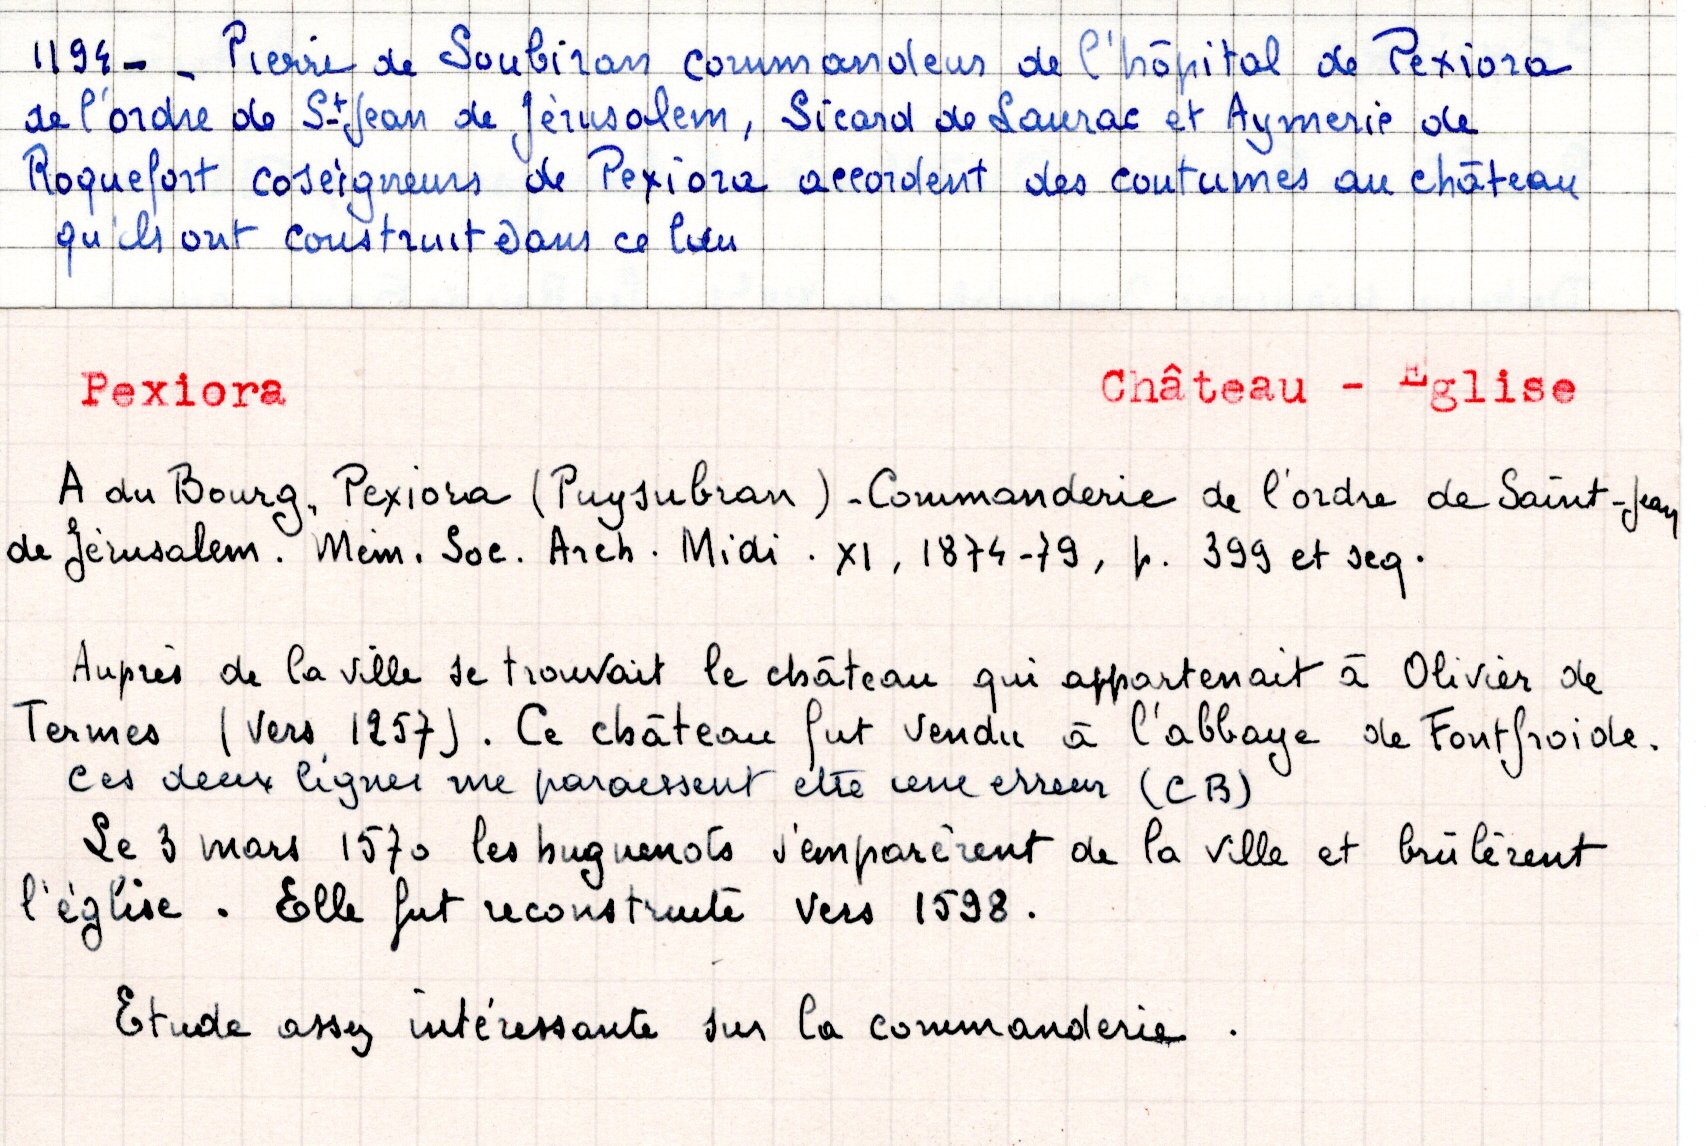 1194 - - Pierre de Soubiran commandeur de l'hôpital de Pexiora
de l'ordre de St Jean de Jérusalem, Sicard de Laurac et Aymeric de
Roquefort coseigneurs de Pexiora accordent des coutumes au château
qu'ils ont construit dans ce lieu
Pexiora Château - Eglise
A du Bourg, Pexiora (Puysubran) - Commanderie de l'ordre de Saint-Jean
de Jérusalem. Mém. Soc. Arch. Midi. XI, 1874-79, p. 399 et seq.
Auprès de la ville se trouvait le château qui appartenait à Olivier de
Termes (vers 1257). Ce château fut vendu à l'abbaye de Fontfroide.
Ces deux lignes me paraissent être une erreur (CB)
Le 3 mars 1570 les huguenots s'emparèrent de la ville et brûlèrent
l'église. Elle fut reconstruite vers 1598.
Etude assez intéressante sur la commanderie.